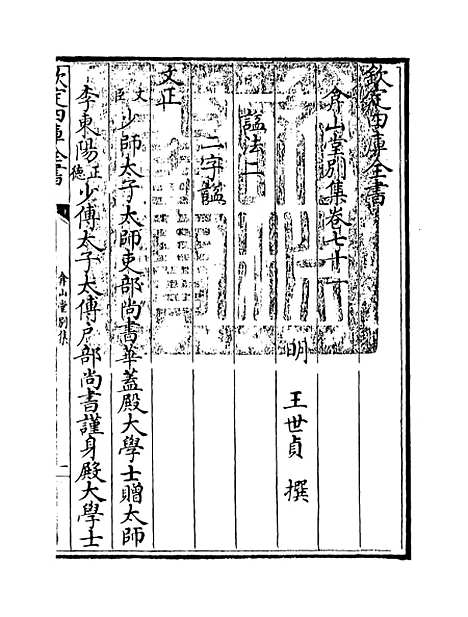 欽定四庫全書
弇山堂別集卷七十一
明 王世貞 撰
諡法二
二字諡
文正
文臣 少師太子太師吏部尚書華蓋殿大學士贈太師
李東陽 正德 少傅太子太傅戶部尚書謹身殿大學士
欽定四庫全書
弇山堂別集
一